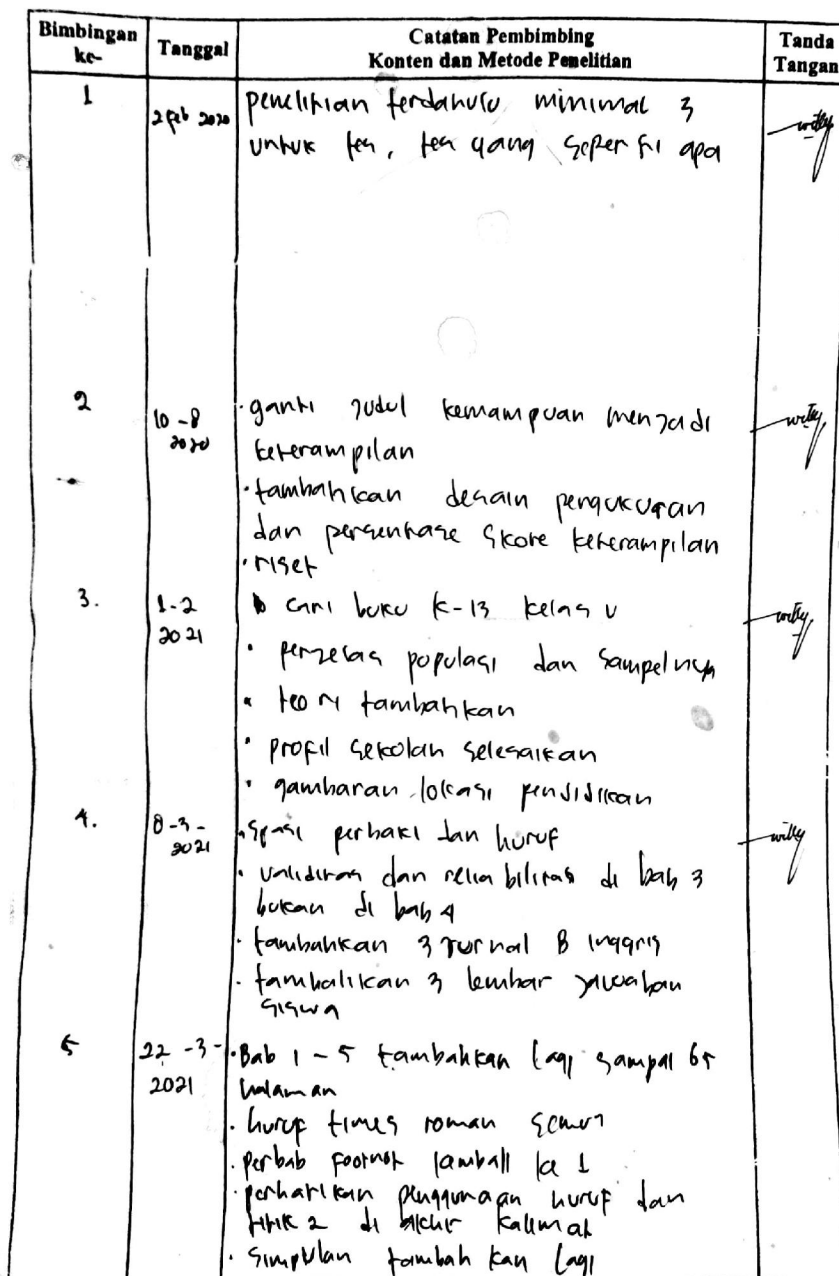 Bimbingan ke- Tanggal Catatan Pembimbing Konten dan Metode Penelitian Tanda Tangan
1 2 feb 2020 penelitian terdahulu minimal 3
untuk tes, tes yang seperti apa
2 10-8 2020 · ganti judul kemampuan menjadi
keterampilan
· tambahkan desain pengukuran
dan persentase skore keterampilan
· riset
3. 1-2 2021 cari buku K-13 kelas V
· perjelas populasi dan sampelnya
· teori tambahkan
· profil sekolah selesaikan
· gambaran lokasi pendidikan
4. 8-3-2021 · spasi perbaki dan huruf
· validitas dan reliabilitas di bab 3
bukan di bab 4
· tambahkan 3 jurnal B inggris
· tambahkan 3 lembar jawaban
siswa
5 22-3-2021 · Bab 1-5 tambahkan lagi sampai 65
halaman
· huruf times roman semua
· perbab footnot kembali ke 1
· perhatikan penggunaan huruf dan
titik 2 di akhir kalimat
· simpulan tambahkan lagi